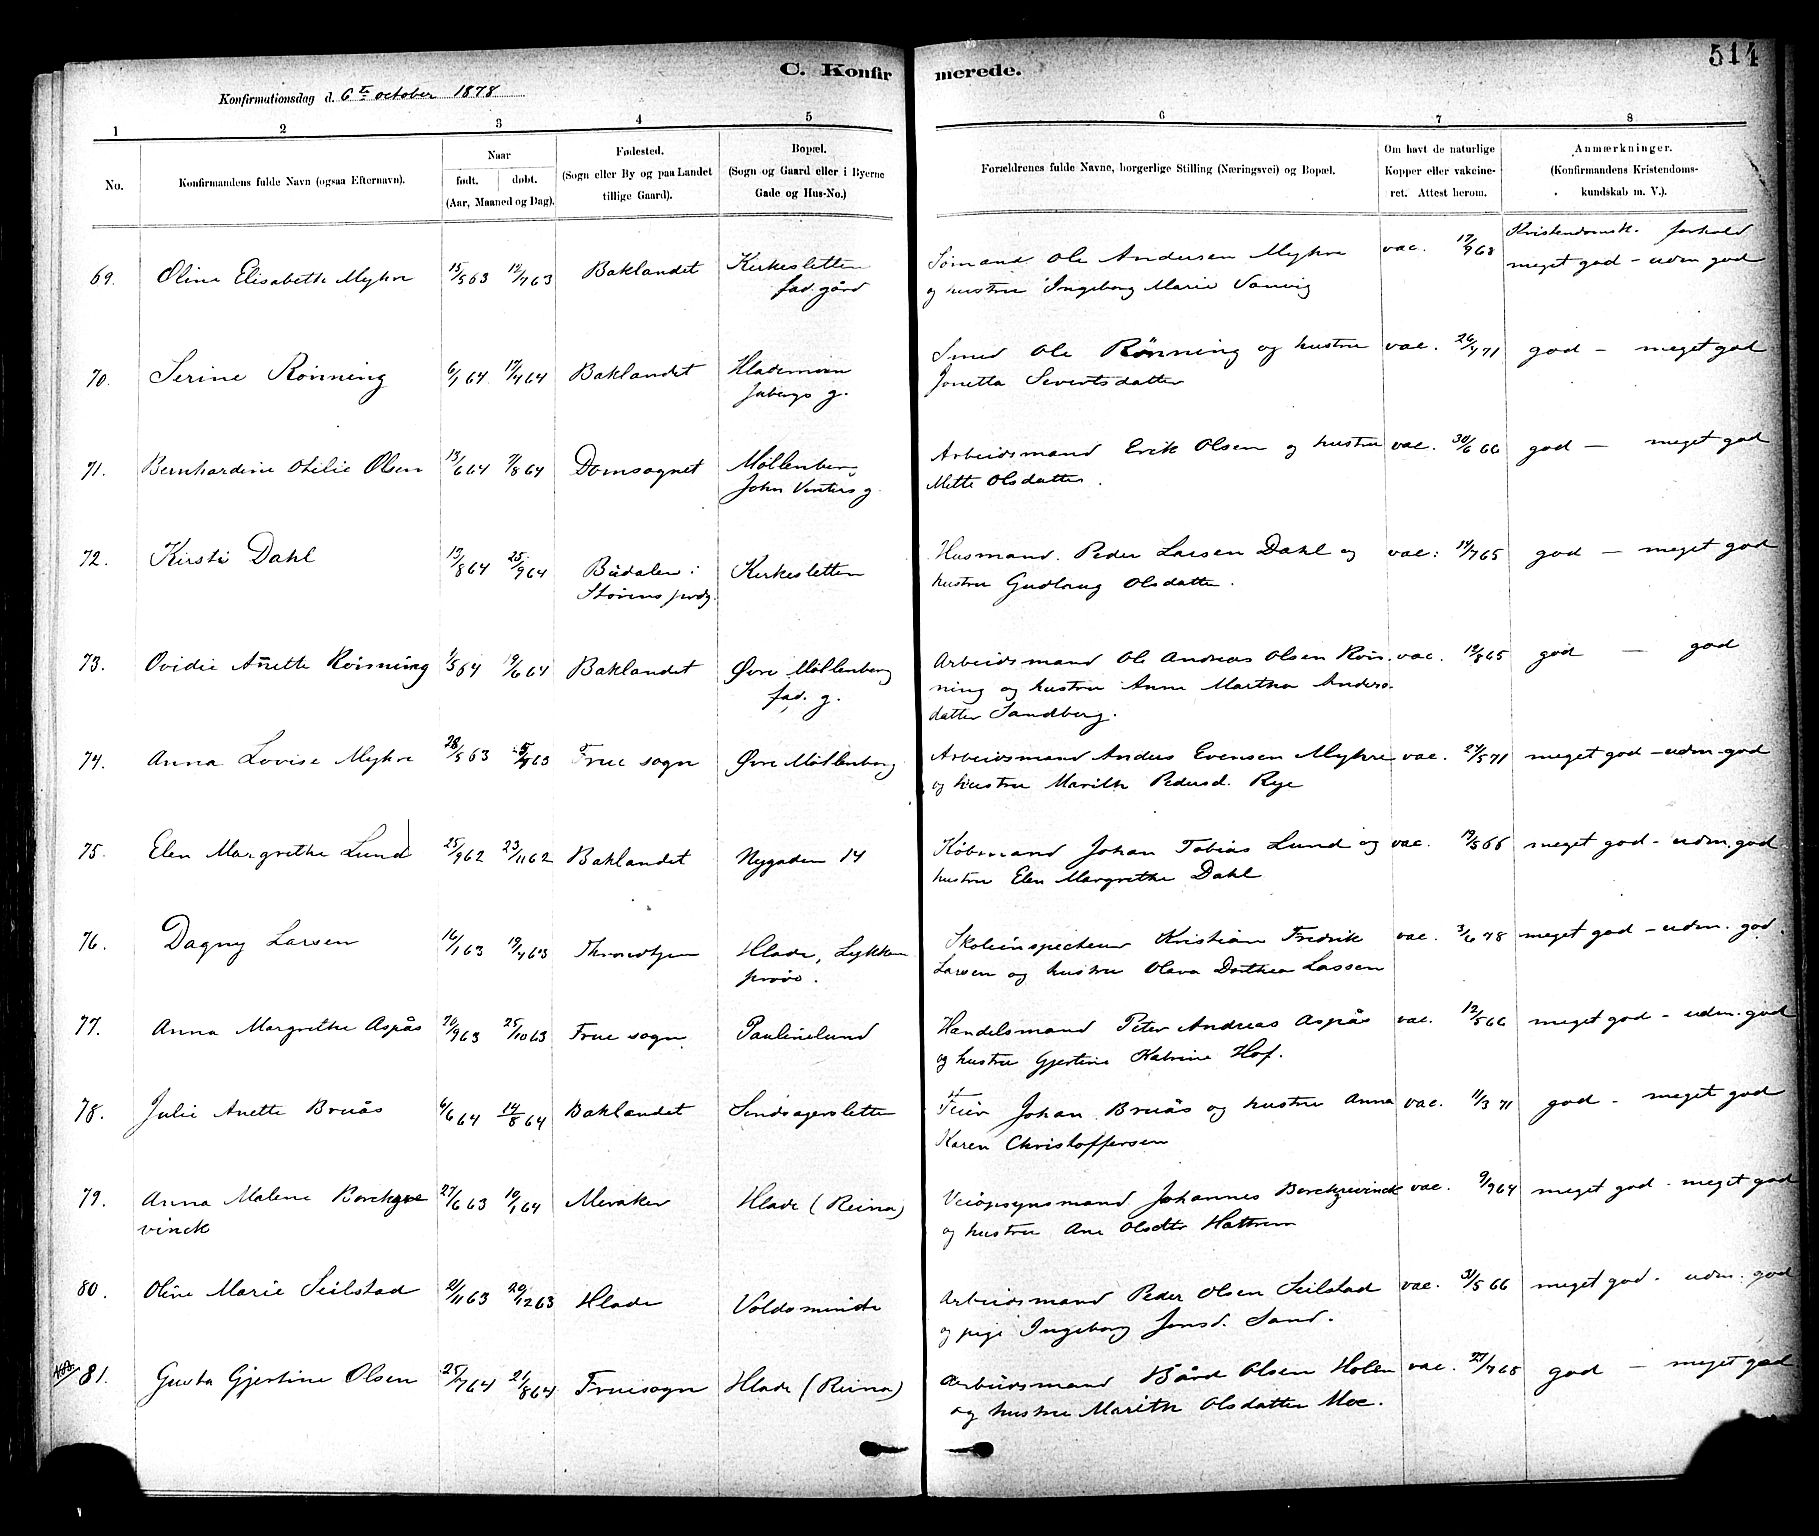 514
C. Konfirmerede.
Konfirmationsdag d. 6te october 1878
1 2 3 4 5 6 7 8
No.
Konfirmandens fulde Navn (ogsaa Efternavn).
Naar
født. døbt.
(Aar, Maaned og Dag).
Fødested.
(Sogn eller By og paa Landet
tillige Gaard).
Bopæl.
(Sogn og Gaard eller i Byerne
Gade og Hus-No.)
Forældrenes fulde Navne, borgerlige Stilling (Næringsvei) og Bopæl.
Om havt de naturlige
Kopper eller vakcine-
ret. Attest herom.
Anmærkninger.
(Konfirmandens Kristendoms-
kundskab m. V.).
69. Oline Elisabeth Myhre 15/5 63 12/7 63 Baklandet Kirkesletten
fad. gård
Sømand Ole Andersen Myhre
og hustru Ingeborg Marie
vac. 17/9 68
Kristendomsk. forhold
meget god - udm. god
70. Serine Rönning 6/1 64 17/4 64 Baklandet
Smed Ole Rönning og hustru
Jonetta Sivertsdatter
vac. 26/4 71 god - meget god
71. Bernhardine Otilie Olsen 13/6 64 7/8 64 Domsognet Møllenberg
John Vinters g.
Arbeidsmand Erik Olsen og hustru
Mette Olsdatter.
vac. 30/6 66 god - meget god
72. Kirsti Dahl 13/8 64 25/9 64 Büdalen i
Størens prdg. Kirkesletten
Husmand Peder Larsen Dahl og
hustru Gudlaug Olsdatter.
vac: 14/7 65 god - meget god
73. Ovidie Anette Rönning 1/5 64 19/6 64 Baklandet Øvre Møllenberg
fad. g.
Arbeidsmand Ole Andreas Olsen Rön-
ning og hustru Anne Martha Anders-
datter Sandberg.
vac. 12/8 65 god - god
74. Anna Lovise Myhre 28/5 63 Frue sogn Øvre Møllenberg
Arbeidsmand Anders Evensen Myhre
og hustru Marith Pedersd. Rye
vac. 24/5 71 meget god - udm. god
75. Elen Margrethe Lund 25/9 62 23/11 62 Baklandet Nygaden 14
Købmand Johan Tobias Lund og
hustru Elen Margrethe Dahl
vac. 19/5 66 meget god - udm. god
76. Dagny Larsen 16/1 63 19/4 63 Throndhjem Hlade, Lykkens
prøve.
Skoleinspecteur Kristian Fredrik
Larsen og hustru Olava Dorthea Lassen
vac. 3/6 78 meget god - udm. god.
77. Anna Margrethe Aspås 20/9 63 25/10 63 Frue sogn Paulinelund
Handelsmand Peter Andreas Aspås
og hustru Gjertine Katrine Hof.
vac. 12/5 66 meget god - udm. god
78. Julie Anette Bruås 6/6 64 14/8 64 Baklandet
Feier Johan Bruås og hustru Anna
Karen Christoffersen
vac. 11/3 71 god - meget god
79. Anna Malene Borchgre
vinck 27/6 63 10/1 64 Meraker Hlade (Reina)
Veiopsynsmand Johannes Borchgrevinck
og hustru Ane Olsdtr Hattrem
vac. 9/9 64 meget god - meget god
80. Oline Marie Seilstad 2/11 63 20/12 63 Hlade Voldsminde
Arbeidsmand Peder Olsen Seilstad
og pige Ingeborg Jonsd. Sand.
vac. 31/5 66 meget god - udm. god
81. Gusta Gjertine Olsen 25/7 64 21/8 64 Fruesogn Hlade (Reina)
Arbeidsmand Bård Olsen Holen
og hustru Marith Olsdatter Moe.
vac. 27/7 68 god - meget god